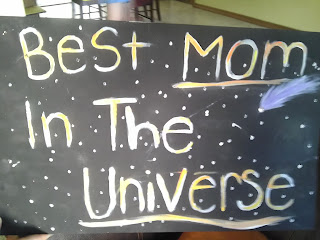 Best Mom
In The
Universe